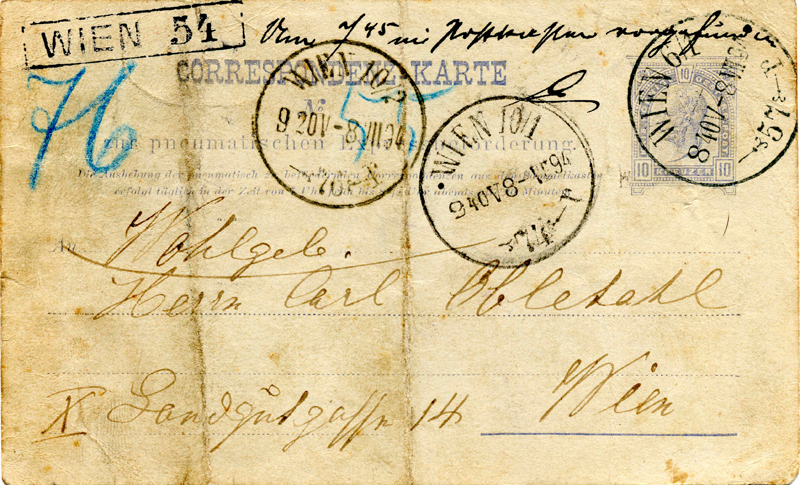 WIEN 54
Um 7 45 im Postkasten vorgefunden
CORRESPONDENZ-KARTE
76
WIEN 10/2
9 20V - 8 VII 94
WIEN 10/1
9 40V 8 94
WIEN
8 40V - 8 VII 9
10
10 KREUZER 10
zur pneumatischen Expressbeförderung.
Die Aushebung der pneumatisch zu befördernden Correspondenzen aus den Sammelkästen
erfolgt täglich in der Zeit von Uhr früh bis Uhr abends Minuten
An
Wohlgeb.
Herrn Carl
Wien
X Landgutgasse 14